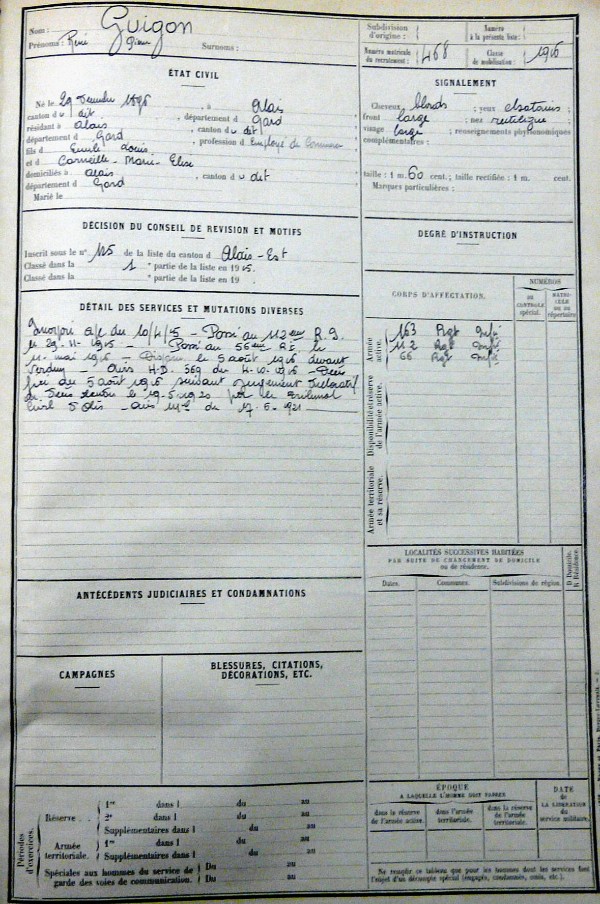 Nom : Guigon
Prénoms : René Pierre Surnoms :
ÉTAT CIVIL
Né le 29 1896, à Alais
canton du dit, département d Gard
résidant à Alais, canton du dit
département d Gard, profession d Employé de Commerce
fils d Emile Louis
et d Corneille - Marie - Elise
domiciliés à Alais, canton du dit
département d Gard
Marié le
DÉCISION DU CONSEIL DE REVISION ET MOTIFS
Inscrit sous le n° 125 de la liste du canton d Alais-Est
Classé dans la 1 e partie de la liste en 1915.
Classé dans la e partie de la liste en 19
DÉTAIL DES SERVICES ET MUTATIONS DIVERSES
Incorporé du 10/4/15 - Passé au 112ème R.I.
le 29-11-1915 - Passé au 56ème R.I. le
11 mai 1916 - Disparu le 5 août 1916 devant
Verdun - Avis H.D. 569 du
du 5 août 1916 suivant jugement déclaratif
du rendu le 19-5-1920 par le Tribunal
Civil d'Alais - Avis du 17-5-1921
ANTÉCÉDENTS JUDICIAIRES ET CONDAMNATIONS
CAMPAGNES
BLESSURES, CITATIONS,
DÉCORATIONS, ETC.
Périodes d'exercices.
Réserve . .
1re dans l du au
2e dans l du au
Supplémentaires dans l du au
Armée territoriale.
1re dans l du au
Supplémentaires dans l du au
Spéciales aux hommes du service de
garde des voies de communication.
Du au
Du au
Subdivision
d'origine :
Numéro
à la présente liste :
Numéro matricule
du recrutement : 468
Classe
de mobilisation : 1916
SIGNALEMENT
Cheveux blonds ; yeux chatains ;
front large ; nez rectiligne ;
visage large ; renseignements physionomiques
complémentaires :
taille : 1 m. 60 cent. ; taille rectifiée : 1 m. cent.
Marques particulières :
DEGRÉ D'INSTRUCTION
CORPS D'AFFECTATION.
NUMÉROS
DU CONTROLE spécial.
MATRICULE ou du répertoire
Armée active.
163 Rgt Infie
112 Rgt Infie
Rgt Infie
Disponibilité et réserve de l'armée active.
Armée territoriale et sa réserve.
LOCALITÉS SUCCESSIVES HABITÉES
PAR SUITE DE CHANGEMENT DE DOMICILE
ou de résidence.
D. Domicile. R. Résidence.
Dates.
Communes.
Subdivisions de région.
ÉPOQUE
A LAQUELLE L'HOMME DOIT PASSER
dans la réserve de l'armée active.
dans l'armée territoriale.
dans la réserve de l'armée territoriale.
DATE
de
LA LIBÉRATION
du
service militaire.
Ne remplir ce tableau que pour les hommes dont les services font
l'objet d'un décompte spécial (engagés, condamnés, omis, etc.).